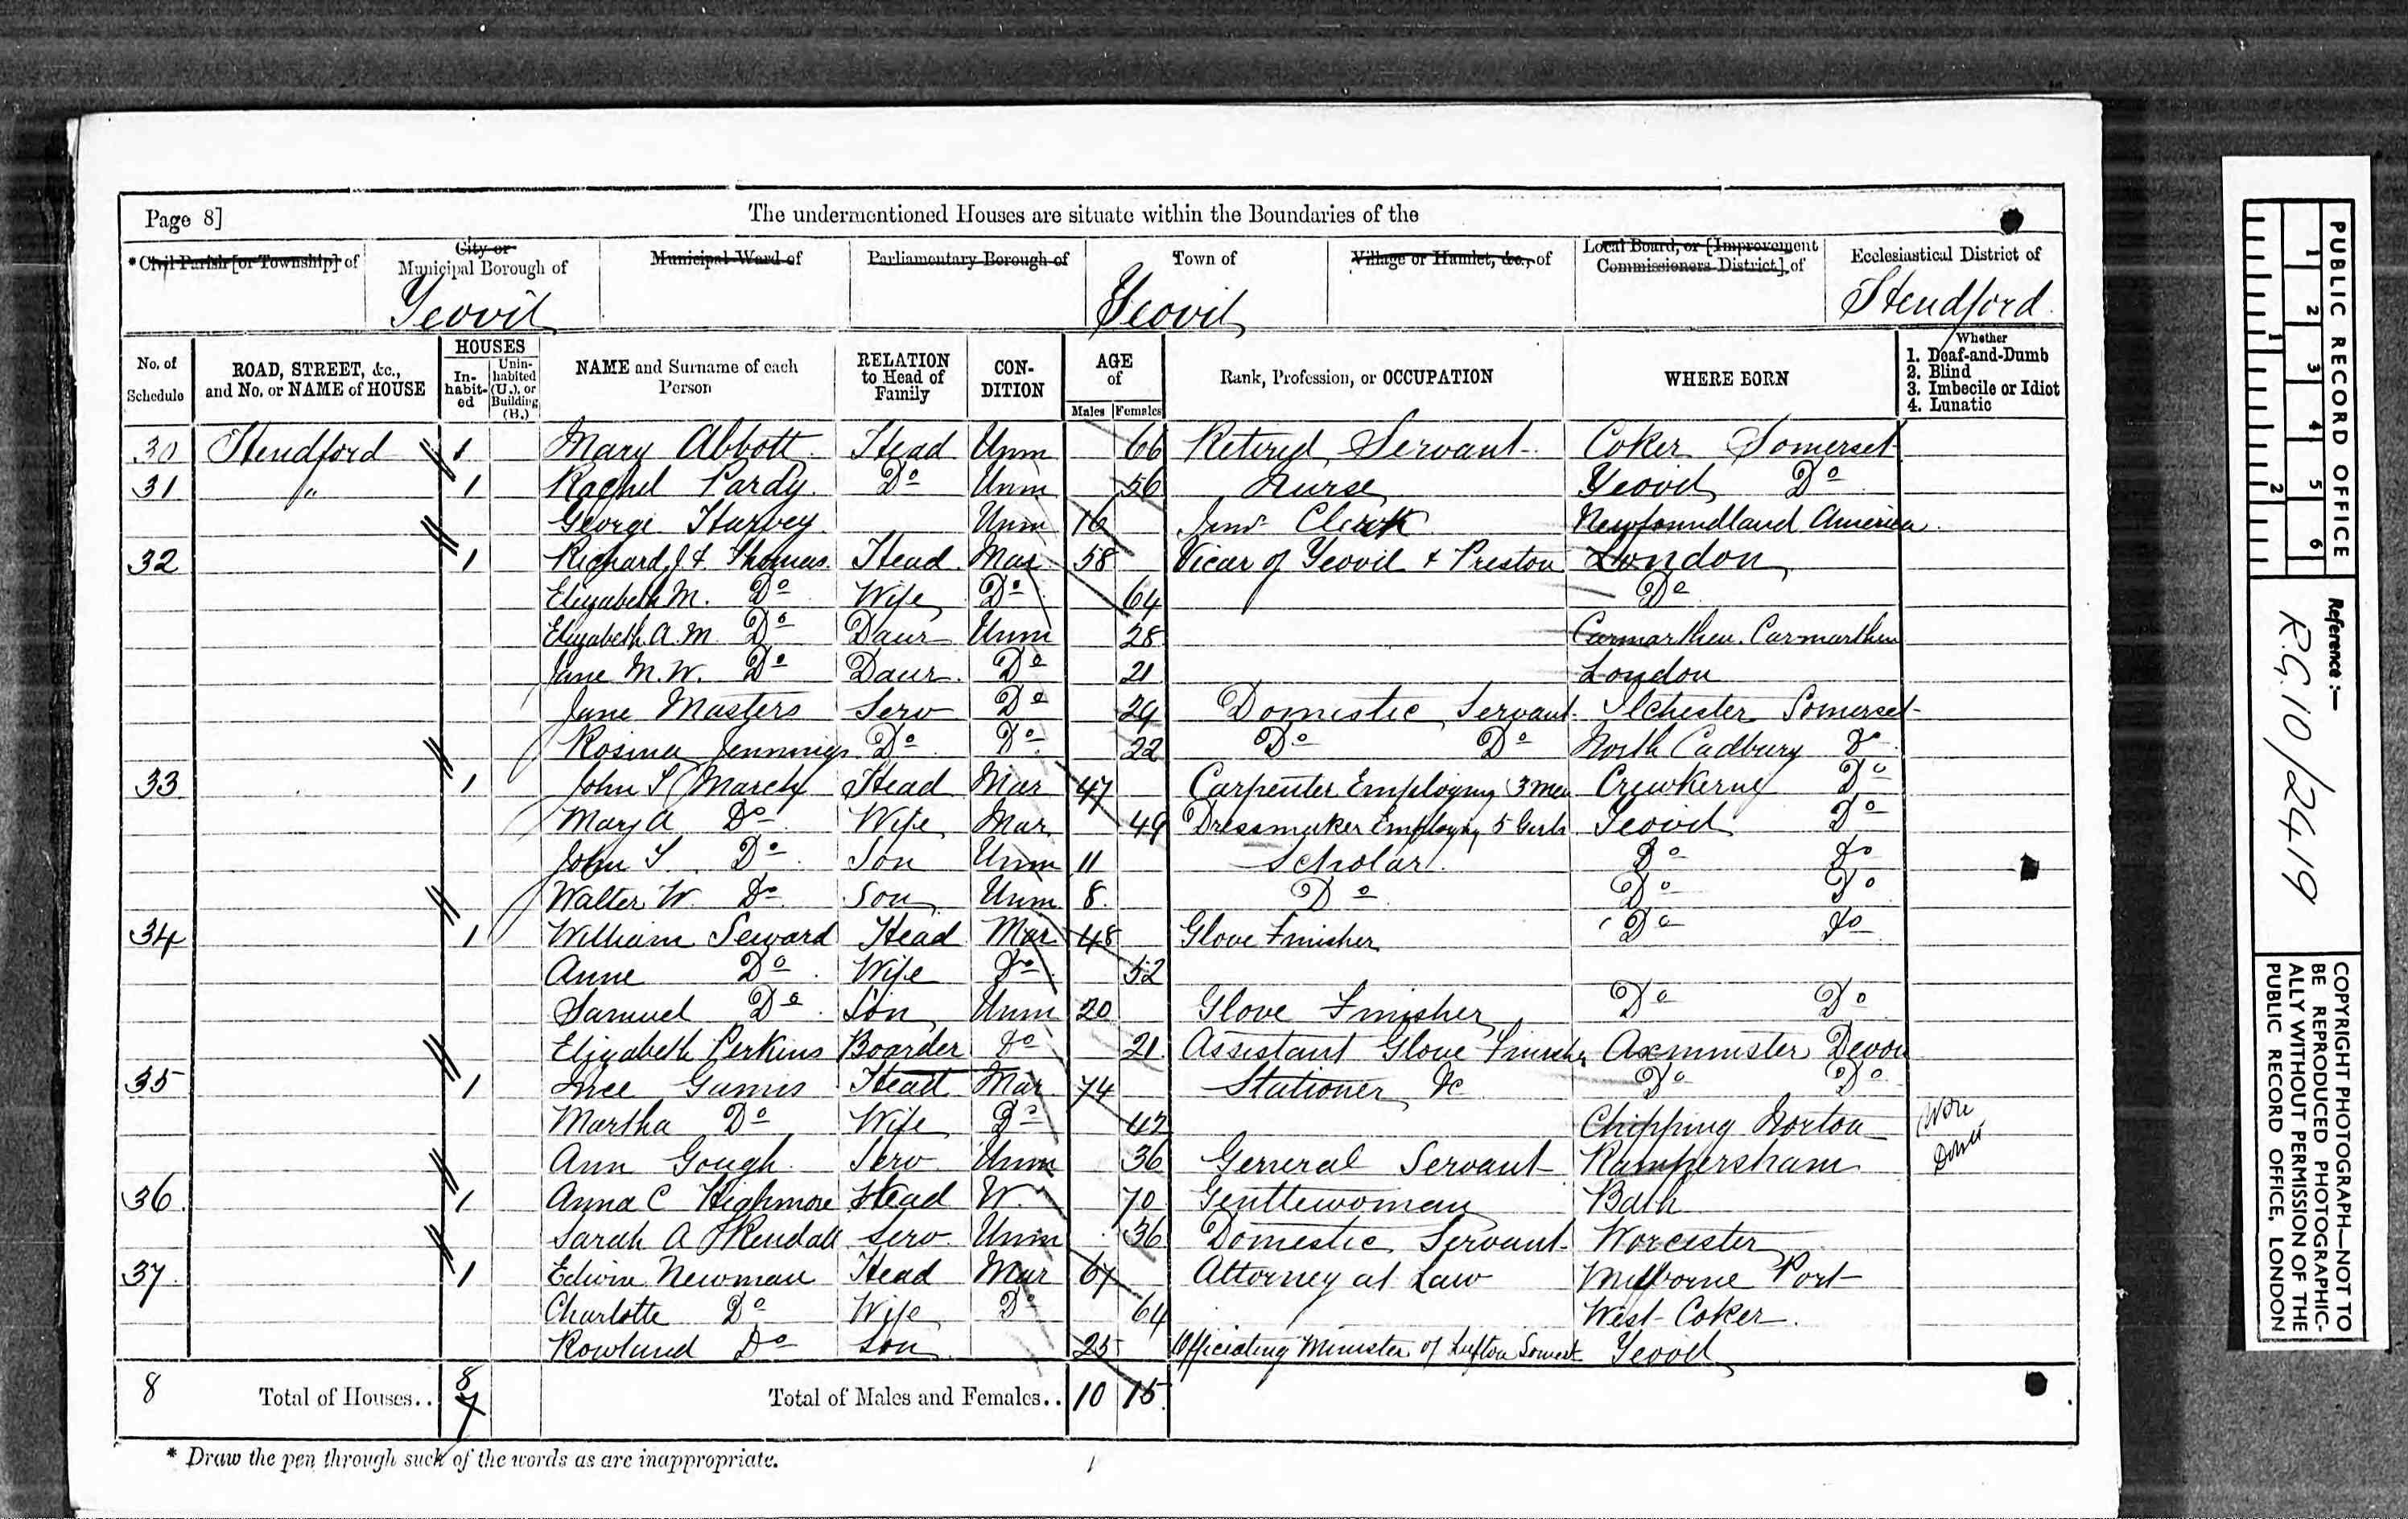 Page 8] The undermentioned Houses are situate within the Boundaries of the
*Civil Parish [or Township] of City or Municipal Borough of Municipal Ward of Parliamentary Borough of Town of Village or Hamlet, &c., of Local Board, or [Improvement Commissioners District] of Ecclesiastical District of
Yeovil Yeovil Hendford
No. of Schedule ROAD, STREET, &c., and No. or NAME of HOUSE HOUSES In-habit-ed Unin-habited (U.), or Building (B.) NAME and Surname of each Person RELATION to Head of Family CON-DITION AGE of Males Females Rank, Profession, or OCCUPATION WHERE BORN Whether 1. Deaf-and-Dumb 2. Blind 3. Imbecile or Idiot 4. Lunatic
30 Hendford 1 Mary Abbott Head Unm 66 Retired Servant Coker Somerset
31 " 1 Rachel Pardy Do Unm 56 Nurse Yeovil Do
George Harvey Unm 16 Clerk Newfoundland America
32 1 Richard J. F. Thomas Head Mar 58 Vicar of Yeovil & Preston London
Elizabeth M. Do Wife Do 64 Do
Elizabeth A. M. Do Daur Unm 28 Carmarthen. Carmarthen
Jane M. W. Do Daur Do 21 London
Jane Masters Serv Do 29 Domestic Servant Ilchester Somerset
Rosina Jennings Do Do 22 Do Do North Cadbury Do
33 1 John S March Head Mar 47 Carpenter Employing 3 Men Crewkerne Do
Mary A Do Wife Mar 49 Dressmaker Employing 5 Girls Yeovil Do
John S Do Son Unm 11 Scholar Do Do
Walter W Do Son Unm 8 Do Do Do
34 1 William Seward Head Mar 48 Glove Finisher Do Do
Anne Do Wife Do 52
Samuel Do Son Unm 20 Glove Finisher Do Do
Elizabeth Perkins Boarder Do 21 Assistant Glove Finisher Axminster Devon
35 1 Head Mar 74 Stationer &c Do Do
Martha Do Wife Do 42 Chipping Norton
Ann Gough Serv Unm 36 General Servant Rampersham Dorset
36 1 Anna C Highmore Head W. 70 Gentlewoman Bath
Sarah A Kendall Serv Unm 36 Domestic Servant Worcester
37 1 Edwin Newman Head Mar 67 Attorney at Law Milborne Port
Charlotte Do Wife Do 64 West Coker
Rowland Do Son 25 Officiating Minister of Lufton Somerst Yeovil
8 Total of Houses.. 8 7 Total of Males and Females.. 10 15
* Draw the pen through such of the words as are inappropriate.
PUBLIC RECORD OFFICE
1 2 3 4 5 6
1 2
Reference :-
R.G. 10/2419
COPYRIGHT PHOTOGRAPH—NOT TO
BE REPRODUCED PHOTOGRAPHIC-
ALLY WITHOUT PERMISSION OF THE
PUBLIC RECORD OFFICE, LONDON